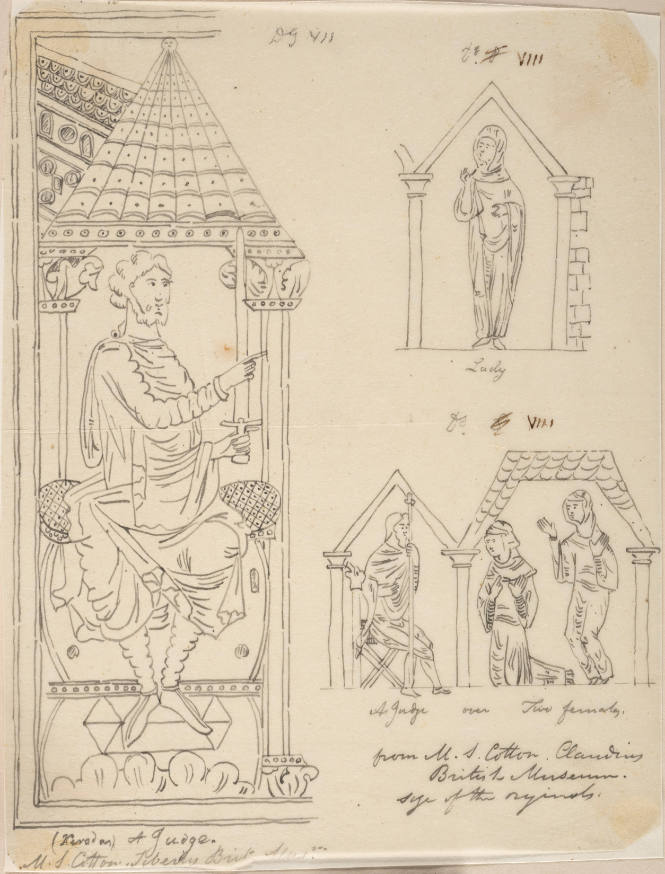 VII
VIII
Lady
VIII
A Judge over Two females.
from M. S. Cotton. Claudius
British Museum.
size of the originals.
(Herodas) A Judge.
M. S. Cotton. Tiberius Brit.